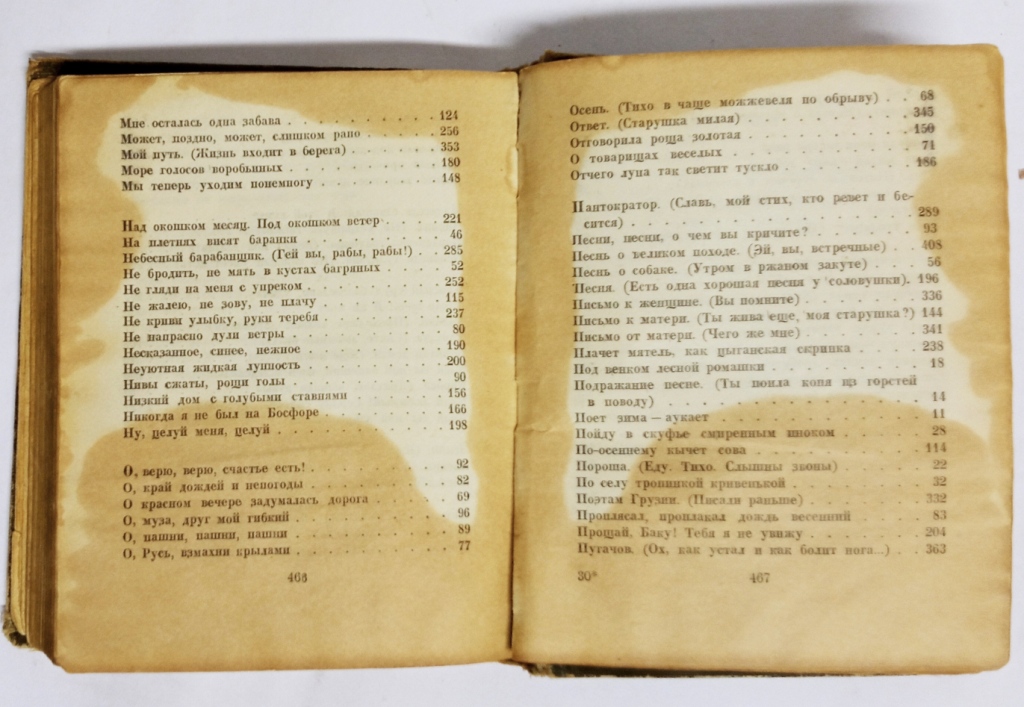 Мне осталась одна забава . . . . . . . . . . 124
Может, поздно, может, слишком рано . . . . . 256
Мой путь. (Жизнь входит в берега) . . . . . . 353
Море голосов воробьиных . . . . . . . . . . 180
Мы теперь уходим понемногу . . . . . . . . 148
Над окошком месяц. Под окошком ветер . . . . 221
На плетнях висят баранки . . . . . . . . . . 46
Небесный барабанщик. (Гей вы, рабы, рабы!) . . 285
Не бродить, не мять в кустах багряных . . . . 52
Не гляди на меня с упреком . . . . . . . . . 252
Не жалею, не зову, не плачу . . . . . . . . 115
Не криви улыбку, руки теребя . . . . . . . . 237
Не напрасно дули ветры . . . . . . . . . . 80
Несказанное, синее, нежное . . . . . . . . . 190
Неуютная жидкая лунность . . . . . . . . . 200
Нивы сжаты, рощи голы . . . . . . . . . . 90
Низкий дом с голубыми ставнями . . . . . . 156
Никогда я не был на Босфоре . . . . . . . . 166
Ну, целуй меня, целуй . . . . . . . . . . . 198
О, верю, верю, счастье есть! . . . . . . . . . 92
О, край дождей и непогоды . . . . . . . . . 82
О красном вечере задумалась дорога . . . . . 69
О, муза, друг мой гибкий . . . . . . . . . . 96
О, пашни, пашни, пашни . . . . . . . . . . 89
О, Русь, взмахни крылами . . . . . . . . . . 77
466
Осень. (Тихо в чаще можжевеля по обрыву) . . 68
Ответ. (Старушка милая) . . . . . . . . . . 345
Отговорила роща золотая . . . . . . . . . . 150
О товарищах веселых . . . . . . . . . . . 71
Отчего луна так светит тускло . . . . . . . . 186
Пантократор. (Славь, мой стих, кто ревет и бе-
сится) . . . . . . . . . . . . . . . . . 289
Песни, песни, о чем вы кричите? . . . . . . . 93
Песнь о великом походе. (Эй, вы, встречные) . . 408
Песнь о собаке. (Утром в ржаном закуте) . . . 56
Песня. (Есть одна хорошая песня у соловушки). 196
Письмо к женщине. (Вы помните) . . . . . . . 336
Письмо к матери. (Ты жива еще, моя старушка?) 144
Письмо от матери. (Чего же мне) . . . . . . . 341
Плачет мятель, как цыганская скрипка . . . . 238
Под венком лесной ромашки . . . . . . . . . 18
Подражание песне. (Ты поила коня из горстей
в поводу) . . . . . . . . . . . . . . . 14
Поет зима — аукает . . . . . . . . . . . . 11
Пойду в скуфье смиренным иноком . . . . . . 28
По-осеннему кычет сова . . . . . . . . . . 114
Пороша. (Еду. Тихо. Слышны звоны) . . . . . 22
По селу тропинкой кривенькой . . . . . . . . 32
Поэтам Грузии. (Писали раньше) . . . . . . . 332
Проплясал, проплакал дождь весенний . . . . 83
Прощай, Баку! Тебя я не увижу . . . . . . . 204
Пугачов. (Ох, как устал и как болит нога...) . . 363
30*
467